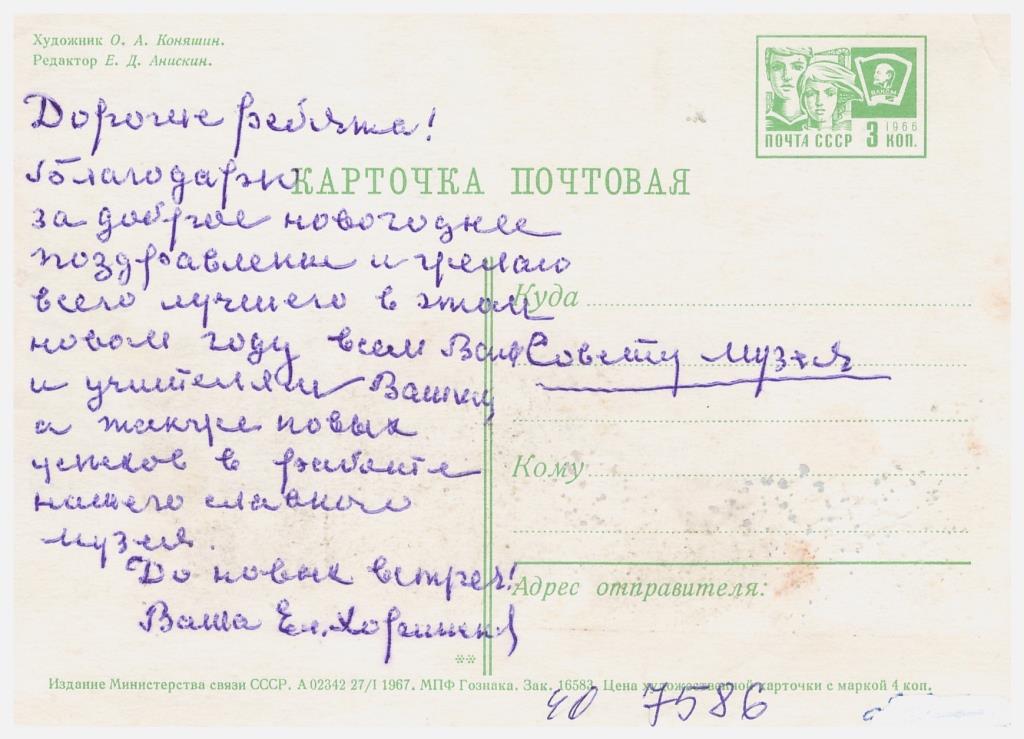 Художник О. А. Коняшин.
Редактор Е. Д. Анискин.
ВЛКСМ
1966
ПОЧТА СССР 3 КОП.
КАРТОЧКА ПОЧТОВАЯ
Дорогие ребята!
Благодарю
за доброе новогоднее
поздравление и желаю
всего лучшего в этом
новом году всем Вам
и учителям Вашим
а также новых
успехов в работе
нашего славного
музея.
До новых встреч!
Ваша Ел.
Куда
Совету музея
Кому
Адрес отправителя:
**
Издание Министерства связи СССР. А 02342 27/I 1967. МПФ Гознака. Зак. 16583. Цена художественной карточки с маркой 4 коп.
7586